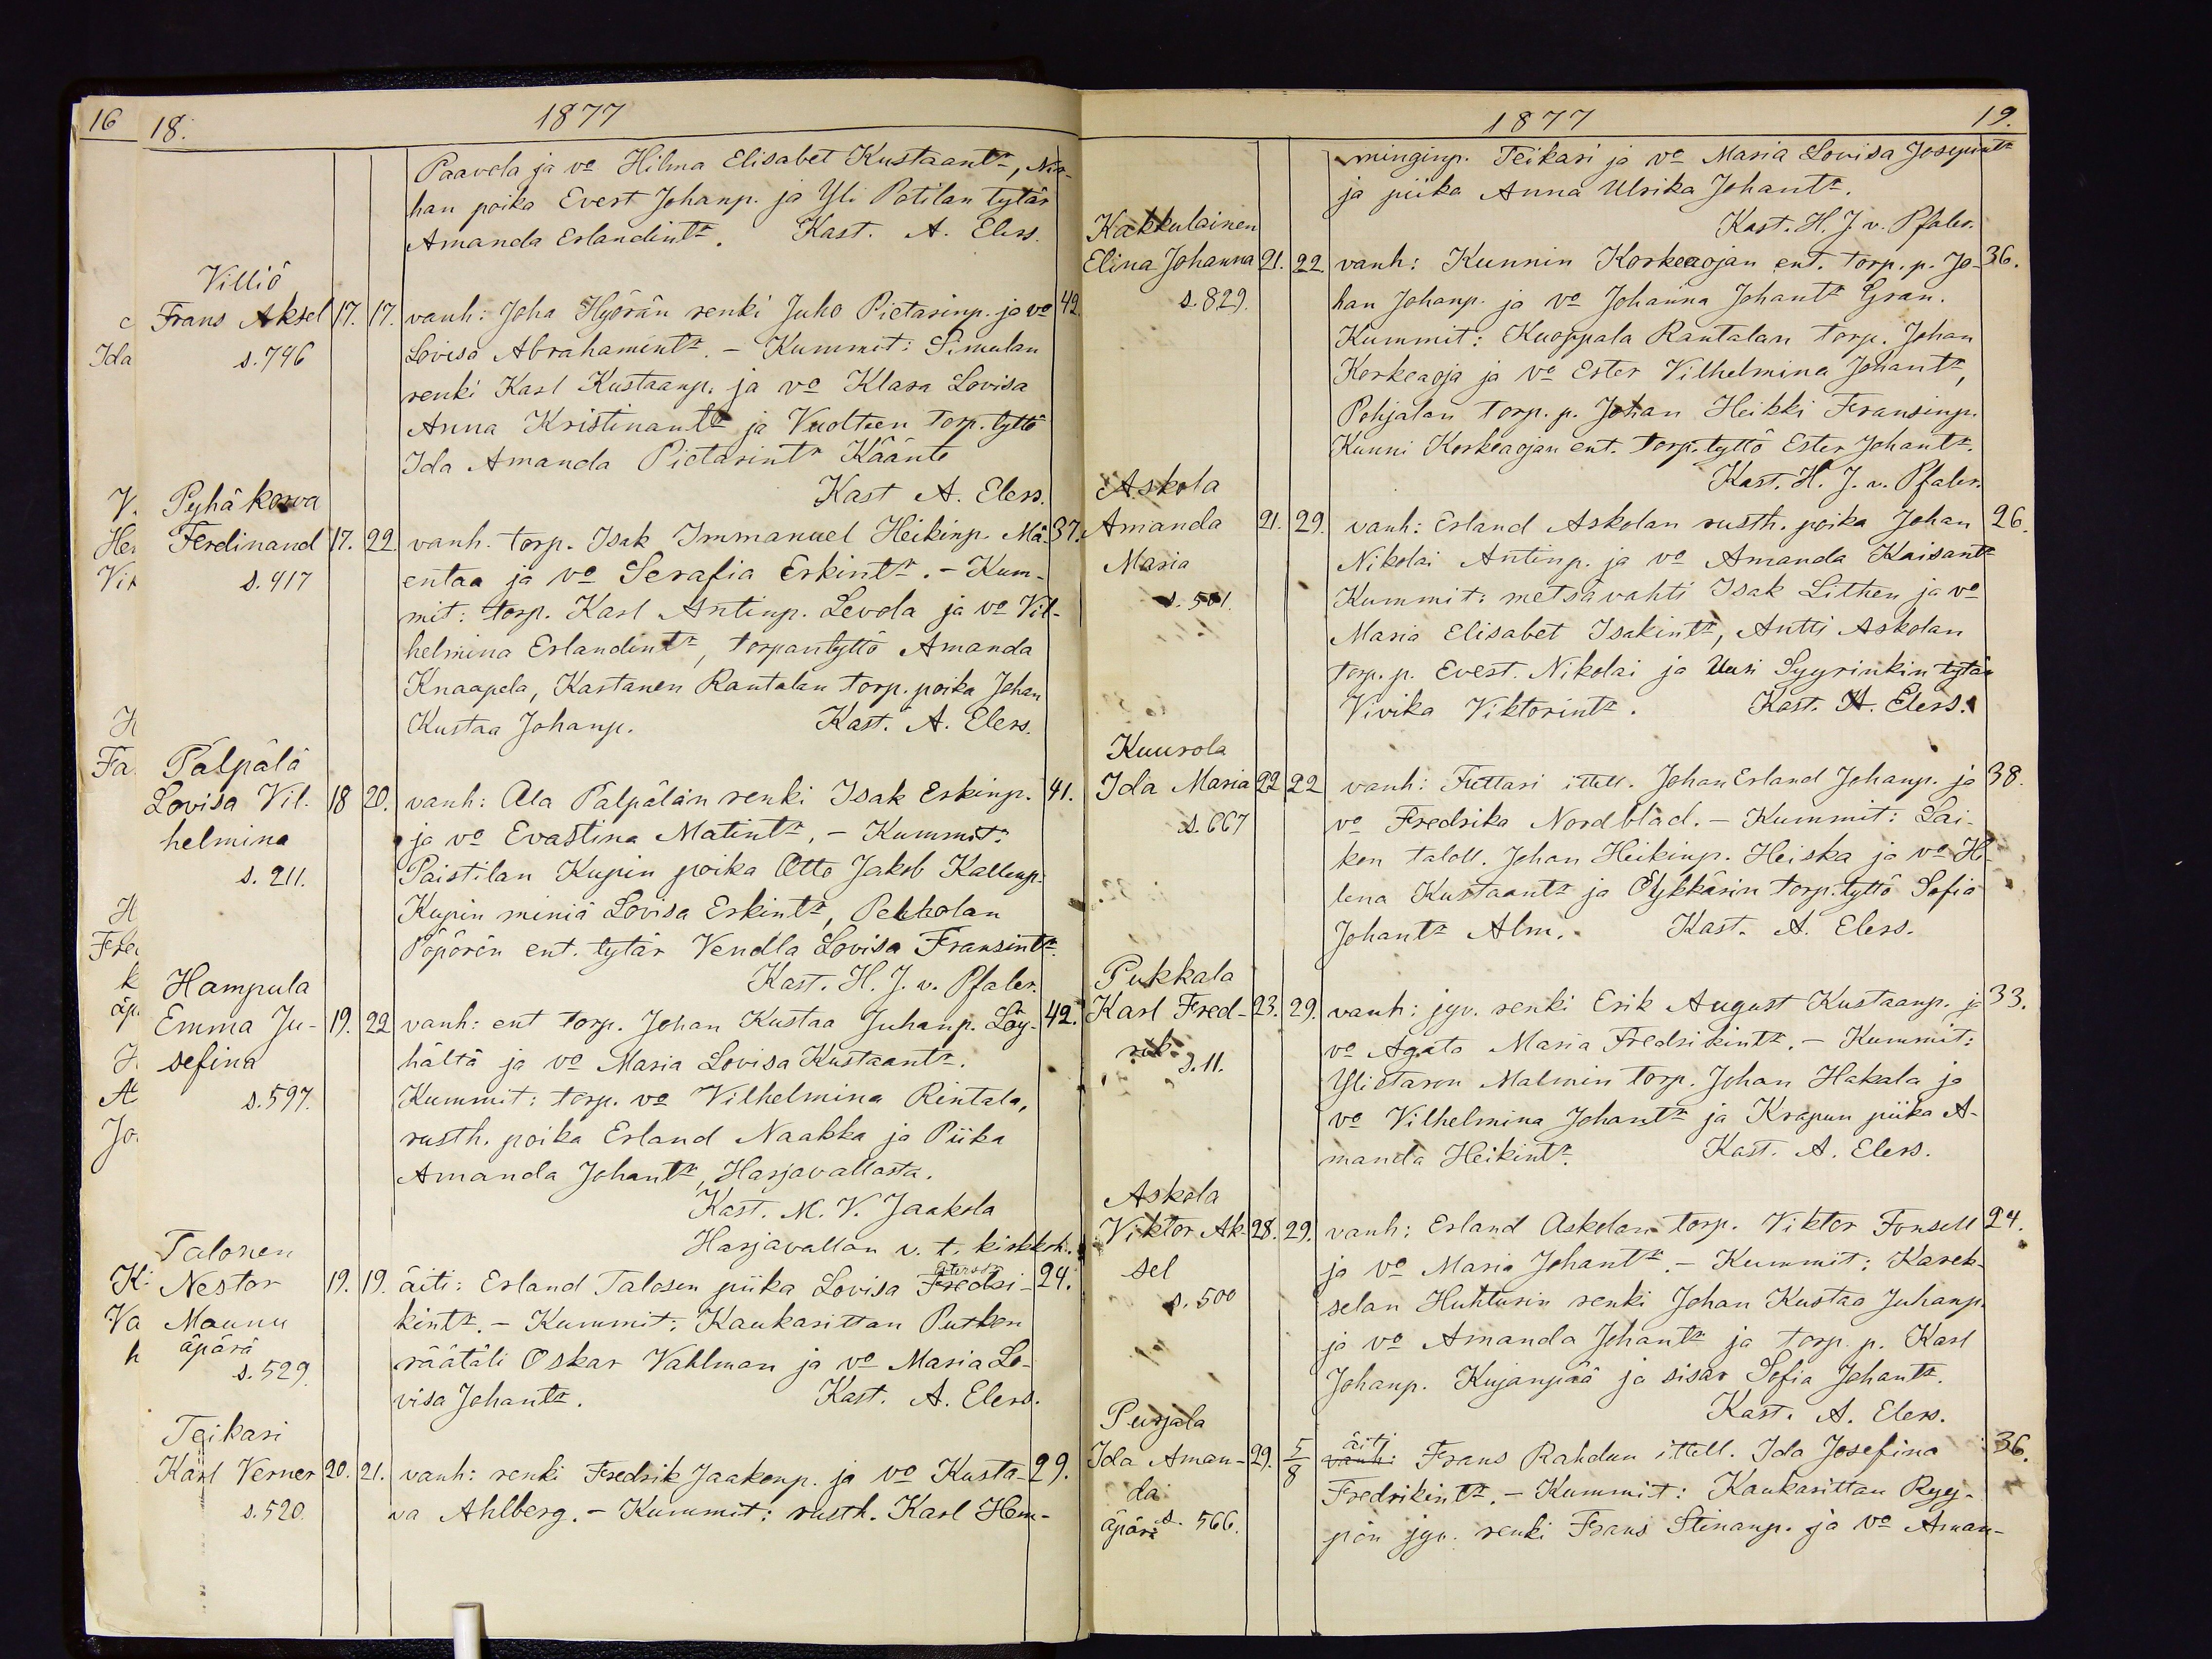 16
18.
1877
Paavola ja vo Hilma Elisabet Kustaantr, Nia-
han poika Evert Johanp. ja Yli Potilan tytär
Amanda Erlandintr. Kast. A. Elers.
Villiö
Frans Aksel 17. 17. vanh: Joha Hyörän renki Juho Pietarinp. ja vo 42.
s. 796 Lovisa Abrahamintr. - Kummit: Simulan
renki Karl Kustaanp. ja vo Klara Lovisa
Anna Kristinantr ja Vuolteen torp. tyttö
Ida Amanda Pietarintr Käänte
Kast A. Elers.
Pyhäkorva
Ferdinand 17. 22. vanh. torp. Isak Immanuel Heikinp. Mä- 37.
s. 417 entaa ja vo Serafia Erkintr. - Kum-
mit: torp. Karl Antinp. Levola ja vo Vil-
helmina Erlandintr, torpantyttö Amanda
Knaapela, Kastanen Rantalan torp. poika Johan
Kustaa Johanp. Kast. A. Elers.
Pälpälä
Lovisa Vil- 18 20. vanh: Ala Pälpälän renki Isak Erkinp. 41.
helmina ja vo Evastina Matintr. - Kummit:
s. 211. Paistilan Kupin poika Otto Jakob Kallenp.
Kupin miniä Lovisa Erkintr, Pehkolan
Pöpörön ent. tytär Vendla Lovisa Fransintr.
Kast. H. J. v. Pfaler.
Hampula
Emma Ju- 19. 22 vanh: ent torp. Johan Kustaa Juhanp. Löy- 42.
sefina hältä ja vo Maria Lovisa Kustaantr.
s. 597. Kummit: torp. vo Vilhelmina Rintala,
rusth. poika Erland Naakka ja Piika
Amanda Johantr, Harjavallasta.
Kast. M. V. Jaakola
Harjavallan v. t. kirkkoh.
Talonen
Nestor 19. 19. äiti: Erland Talosen piika Lovisa Fredri- 24.
Maunu kintr. - Kummit: Kaukarittan Putken
äpärä räätäli Oskar Vahlman ja vo Maria Lo-
s. 529. visa Johantr. Kast. A. Elers.
Teikari
Karl Verner 20. 21. vanh: renki Fredrik Jaakonp. ja vo Kusta- 29.
s. 520. va Ahlberg. - Kummit: rusth. Karl Hem-
1877
19.
minginp. Teikari ja vo Maria Lovisa Josepintr
ja piika Anna Ulrika Johantr.
Kast. H. J. v. Pfaler.
Kakkulainen
Elina Johanna 21. 22. vanh: Kunnin Korkeaojan ent. torp. p. Jo- 36.
s. 829. han Johanp. ja vo Johanna Johantr Gran.
Kummit: Kuoppala Rantalan torp. Johan
Korkeaoja ja vo Ester Vilhelmina Johantr,
Pohjalan torp. p. Johan Heikki Fransinp.
Kunni Korkeaojan ent. torp. tyttö Ester Johantr.
Kast. H. J. v. Pfaler.
Askola
Amanda 21. 29. vanh: Erland Askolan rusth. poika Johan 26.
Maria Nikolai Antinp. ja vo Amanda Kaisantr
s. 501. Kummit: metsävahti Isak Lithen ja vo
Maria Elisabet Isakintr, Antti Askolan
torp. p. Evert Nikolai ja Uusi Syyrinkin tytär
Vivika Viktorintr. Kast. A. Elers.
Kuurola
Ida Maria 22 22 vanh: Futtari ittell. Johan Erland Johanp. ja 38.
s. 667 vo Fredrika Nordblad. - Kummit: Lai-
ken taloll. Johan Heikinp. Heiska ja vo He-
lena Kustaantr ja Öykkärin torp. tyttö Sofia
Johantr Alm. Kast. A. Elers.
Pukkala
Karl Fred- 23. 29. vanh: jyv. renki Erik August Kustaanp. ja 33.
rik vo Agata Maria Fredrikintr. - Kummit:
s. 11. Ylistaron Malmin torp. Johan Hakala ja
vo Vilhelmina Johantr ja Krapun piika A-
manda Heikintr. Kast. A. Elers.
Askola
Viktor Ak- 28. 29. vanh: Erland Askolan torp. Viktor Fonsell 24.
sel ja vo Maria Johantr. - Kummit: Karek-
s. 500 selan Huhturin renki Johan Kustaa Juhanp.
ja vo Amanda Johantr ja torp. p. Karl
Johanp. Kujanpää ja sisar Sofia Johantr.
Kast. A. Elers.
Purjala
Ida Aman- 29. 5/8 äiti vanh: Frans Rahdun ittell. Ida Josefina 36.
da Fredrikintr. - Kummit: Kaukarittan Ryy-
äpärä s. 566. pön jyv. renki Frans Stenanp. ja vo Aman-